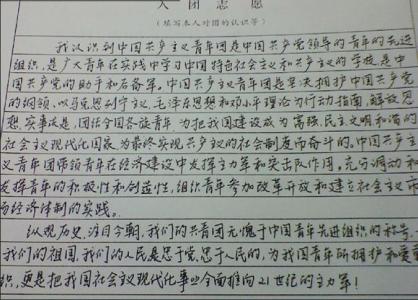 入团志愿
（填写本人对团的认识等）
我认识到中国共产主义青年团是中国共产党领导的青年的先进
组织，是广大青年在实践中学习中国特色社会主义和共产主义的学校，是中
国共产党的助手和后备军。中国共产主义青年团是坚决拥护中国共产党
的纲领，以马克思列宁主义，毛泽东思想和邓小平理论为行动指南，解放思
想，实事求是，团结全国各族青年，为把我国建设成为富强，民主文明和谐的
社会主义现代化国家，为最终实现共产主义的社会制度而奋斗的。中国共产主
义青年团带领青年在经济建设中发挥主力军和突击队作用，充分调动和
发挥青年的积极性和创造性，组织青年参加改革开放和建立社会主义市
场经济体制的实践。
纵观历史，注目今朝，我们的共青团无愧于中国青年先进组织的称号，
我们的祖国，我们的人民是忠于党，忠于人民的，为我国青年所拥护和爱戴
织，更是把我国社会主义现代化事业全面推向21世纪的主力军！